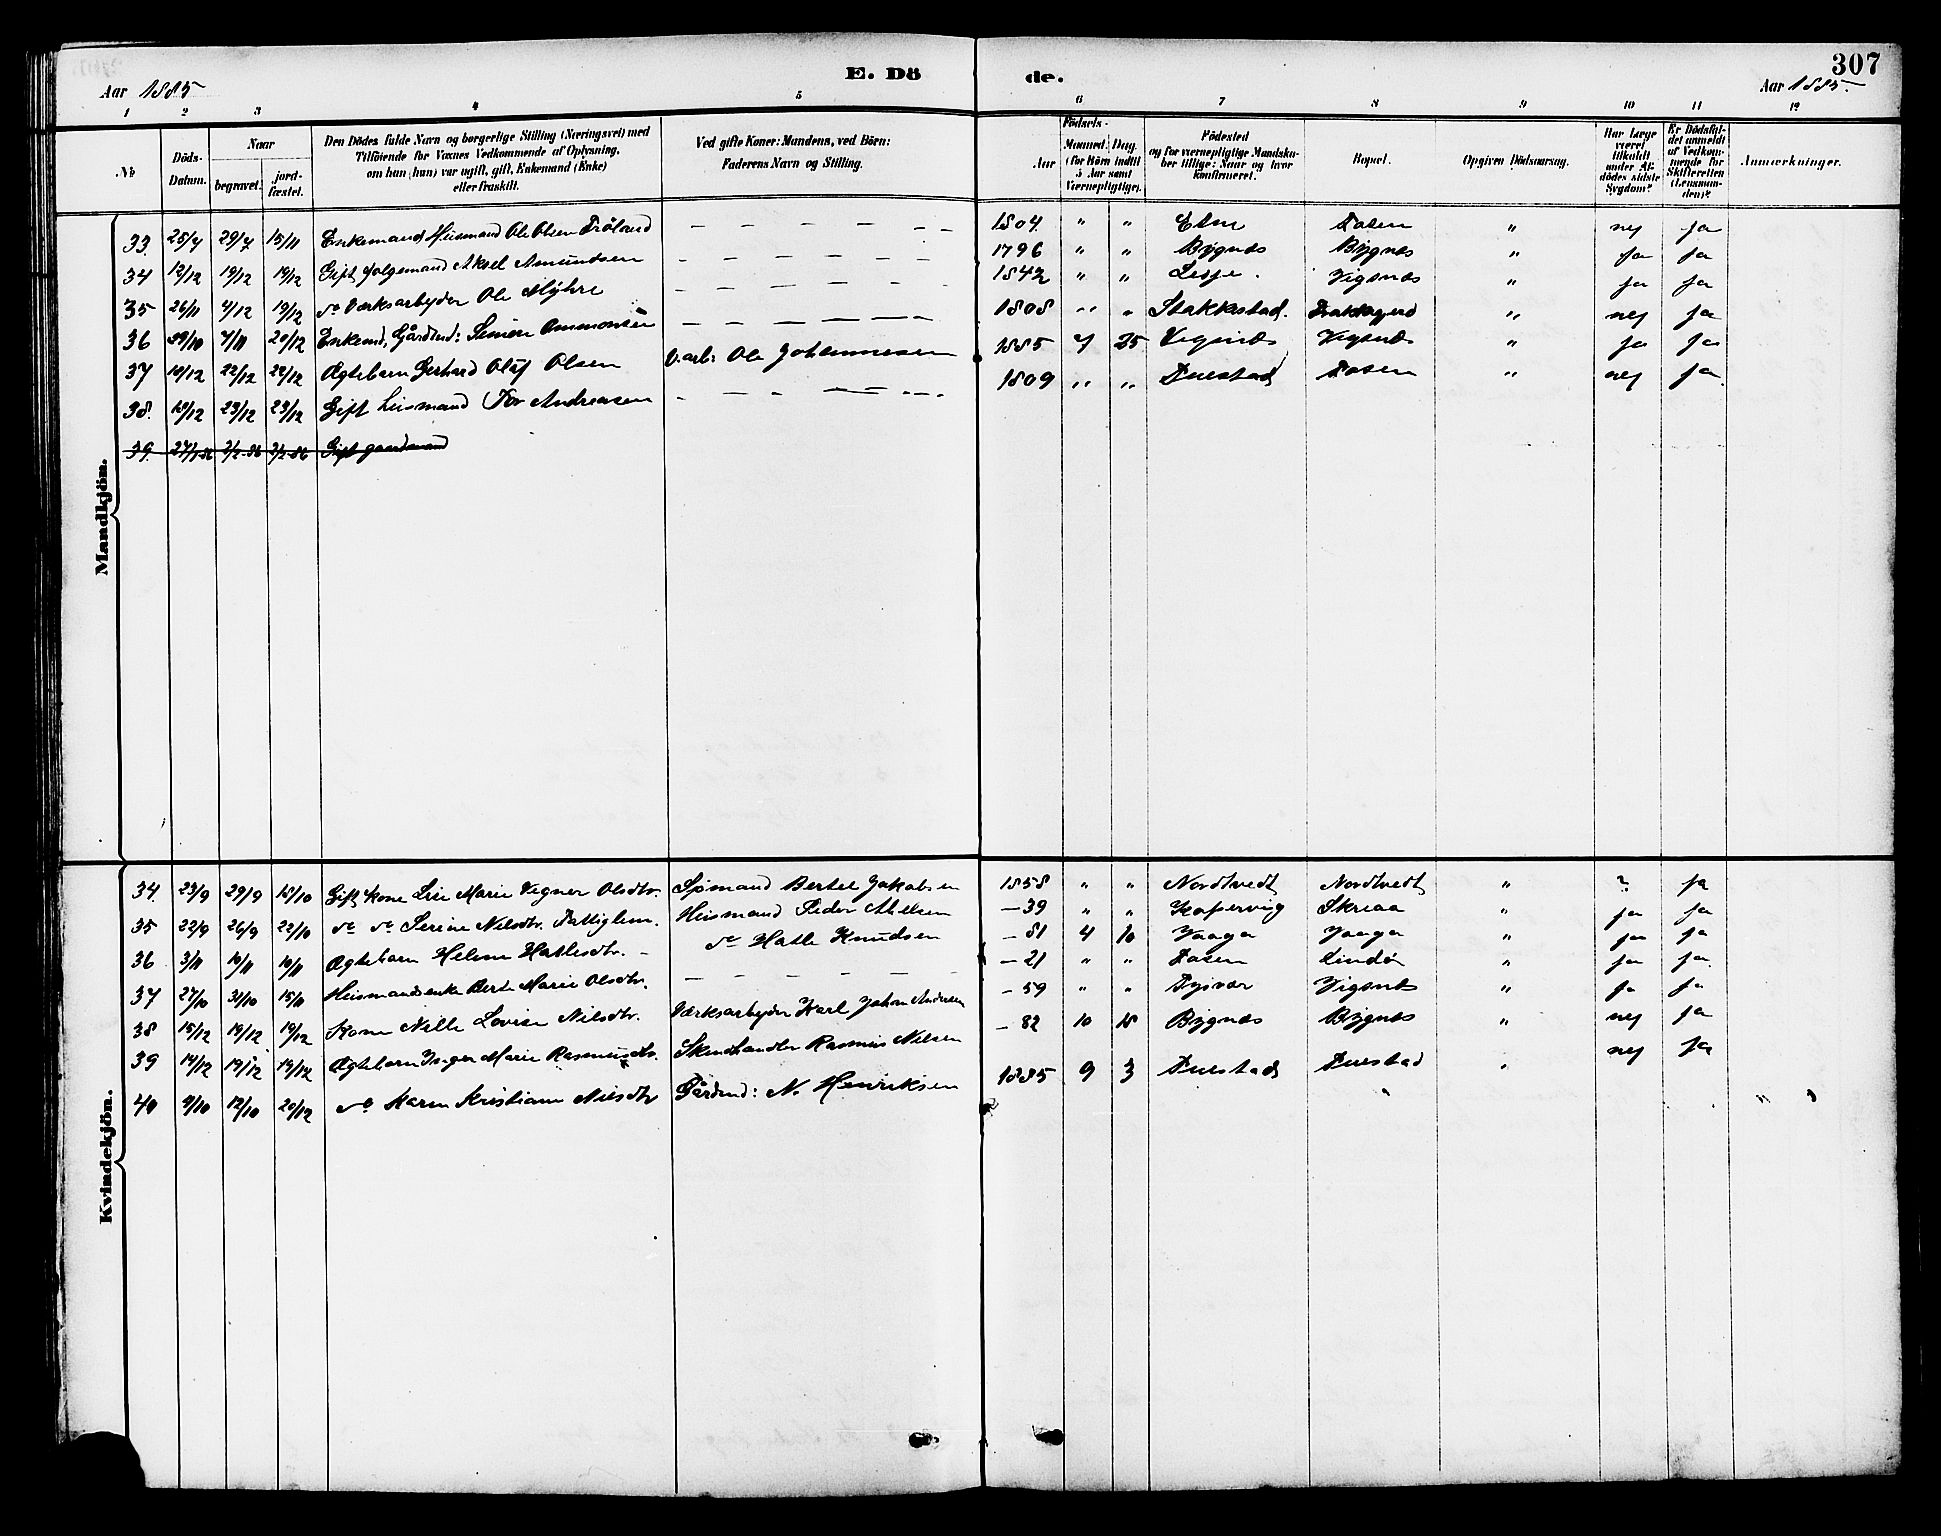 307
E. Döde.
Aar 1885
Aar 1885
1 2 3 4 5 6 7 8 9 10 11 12
No
Döds-Datum.
Naar
begravet.
jord-fæstet.
Den Dödes fulde Navn og borgerlige Stilling (Næringsvei) med
Tilföiende for Voxnes Vedkommende af Oplysning,
om han (hun) var ugift, gift, Enkemand (Enke)
eller fraskilt.
Ved gifte Koner: Mandens, ved Börn:
Faderens Navn og Stilling.
Födsels-
Aar
Maaned. Dag.
(for Börn indtil
5 Aar samt
Værnepligtige).
Födested
og for værnepligtige Mandska-
ber tillige: Naar og hvor
konfirmeret.
Bopæl.
Opgiven Dödsaarsag.
Har Læge
været
tilkaldt
under Af-
dödes sidste
Sygdom?
Er Dödsfal-
det anmeldt
af Vedkom-
mende for
Skifteretten
(Lensman-
den)?
Anmærkninger.
Mandkjön.
33. 25/7 29/7 15/11 Enkemand Huismand Ole Olsen Fröland — — — — — — 1804. " " Etne Fosen " nej ja
34 12/12 19/12 19/12 Gift Folgemand Aksel Amundsen — — — — — — 1796 " " Bygnes Bygnes " ja ja
35 26/11 4/12 19/12 do Værksarbeyder Ole Myhre — — — — — — 1842 " " Lesje. Vigsnes " ja ja
36 29/10 7/11 20/12 Enkemd, Gårdmd: Simon Ommonsen — — — — — — 1808 " " Stakkestad. " nej ja
37 19/12 22/12 22/12 Ægtebarn Gerhard Oluf Olsen V.arb: Ole Johannesen 1885 7 25 Vigsnes Vigsnes " ja ja
38. 19/12 23/12 23/12 Gift huismand Tor Andreasen — — — — — — 1809 " " Tuestad Fosen " nej ja
39. 27/1 86 2/2 86 2/2 86 Gift gaardmand
Kvindekjön.
34. 23/9 29/9 18/10 Gift Kone Lise Marie Vegner Olsdtr. Sjømand Bertel Jakobsen 1858 " " Nordtvedt Nordtvedt " ? ja
35 22/9 26/9 22/10 do do Serine Nilsdtr. Fattiglem. Huismand Peder Akselsen —39 " " Kopervig Skreaa " ja ja
36 3/11 10/11 10/11 Ægtebarn Helene Hatlesdtr. — do Hatle Knudsen —81 4 10 Vaaga Vaaga " ja ja
37 27/10 31/10 15/11 Huismandsenke Berte Marie Olsdtr. — — — — — — —21 " " Fosen Lindö " ja ja
38 15/12 19/12 19/12 Kone Nille Lovise Nilsdtr. Værksarbeyder Karl Johan Andersen —59 " " Vigsnes " ja ja
39 14/12 19/12 19/12 Ægtebarn Inger Marie Rasmusdtr. Skindhandler Rasmus Nilsen —82 10 18 Bygnes Bygnes " nej ja
40 9/10 12/10 20/12 do Karen Kristiane Nilsdtr Gårdmd: N. Henriksen 1885 9 3 Tuestad Tuestad " nej ja